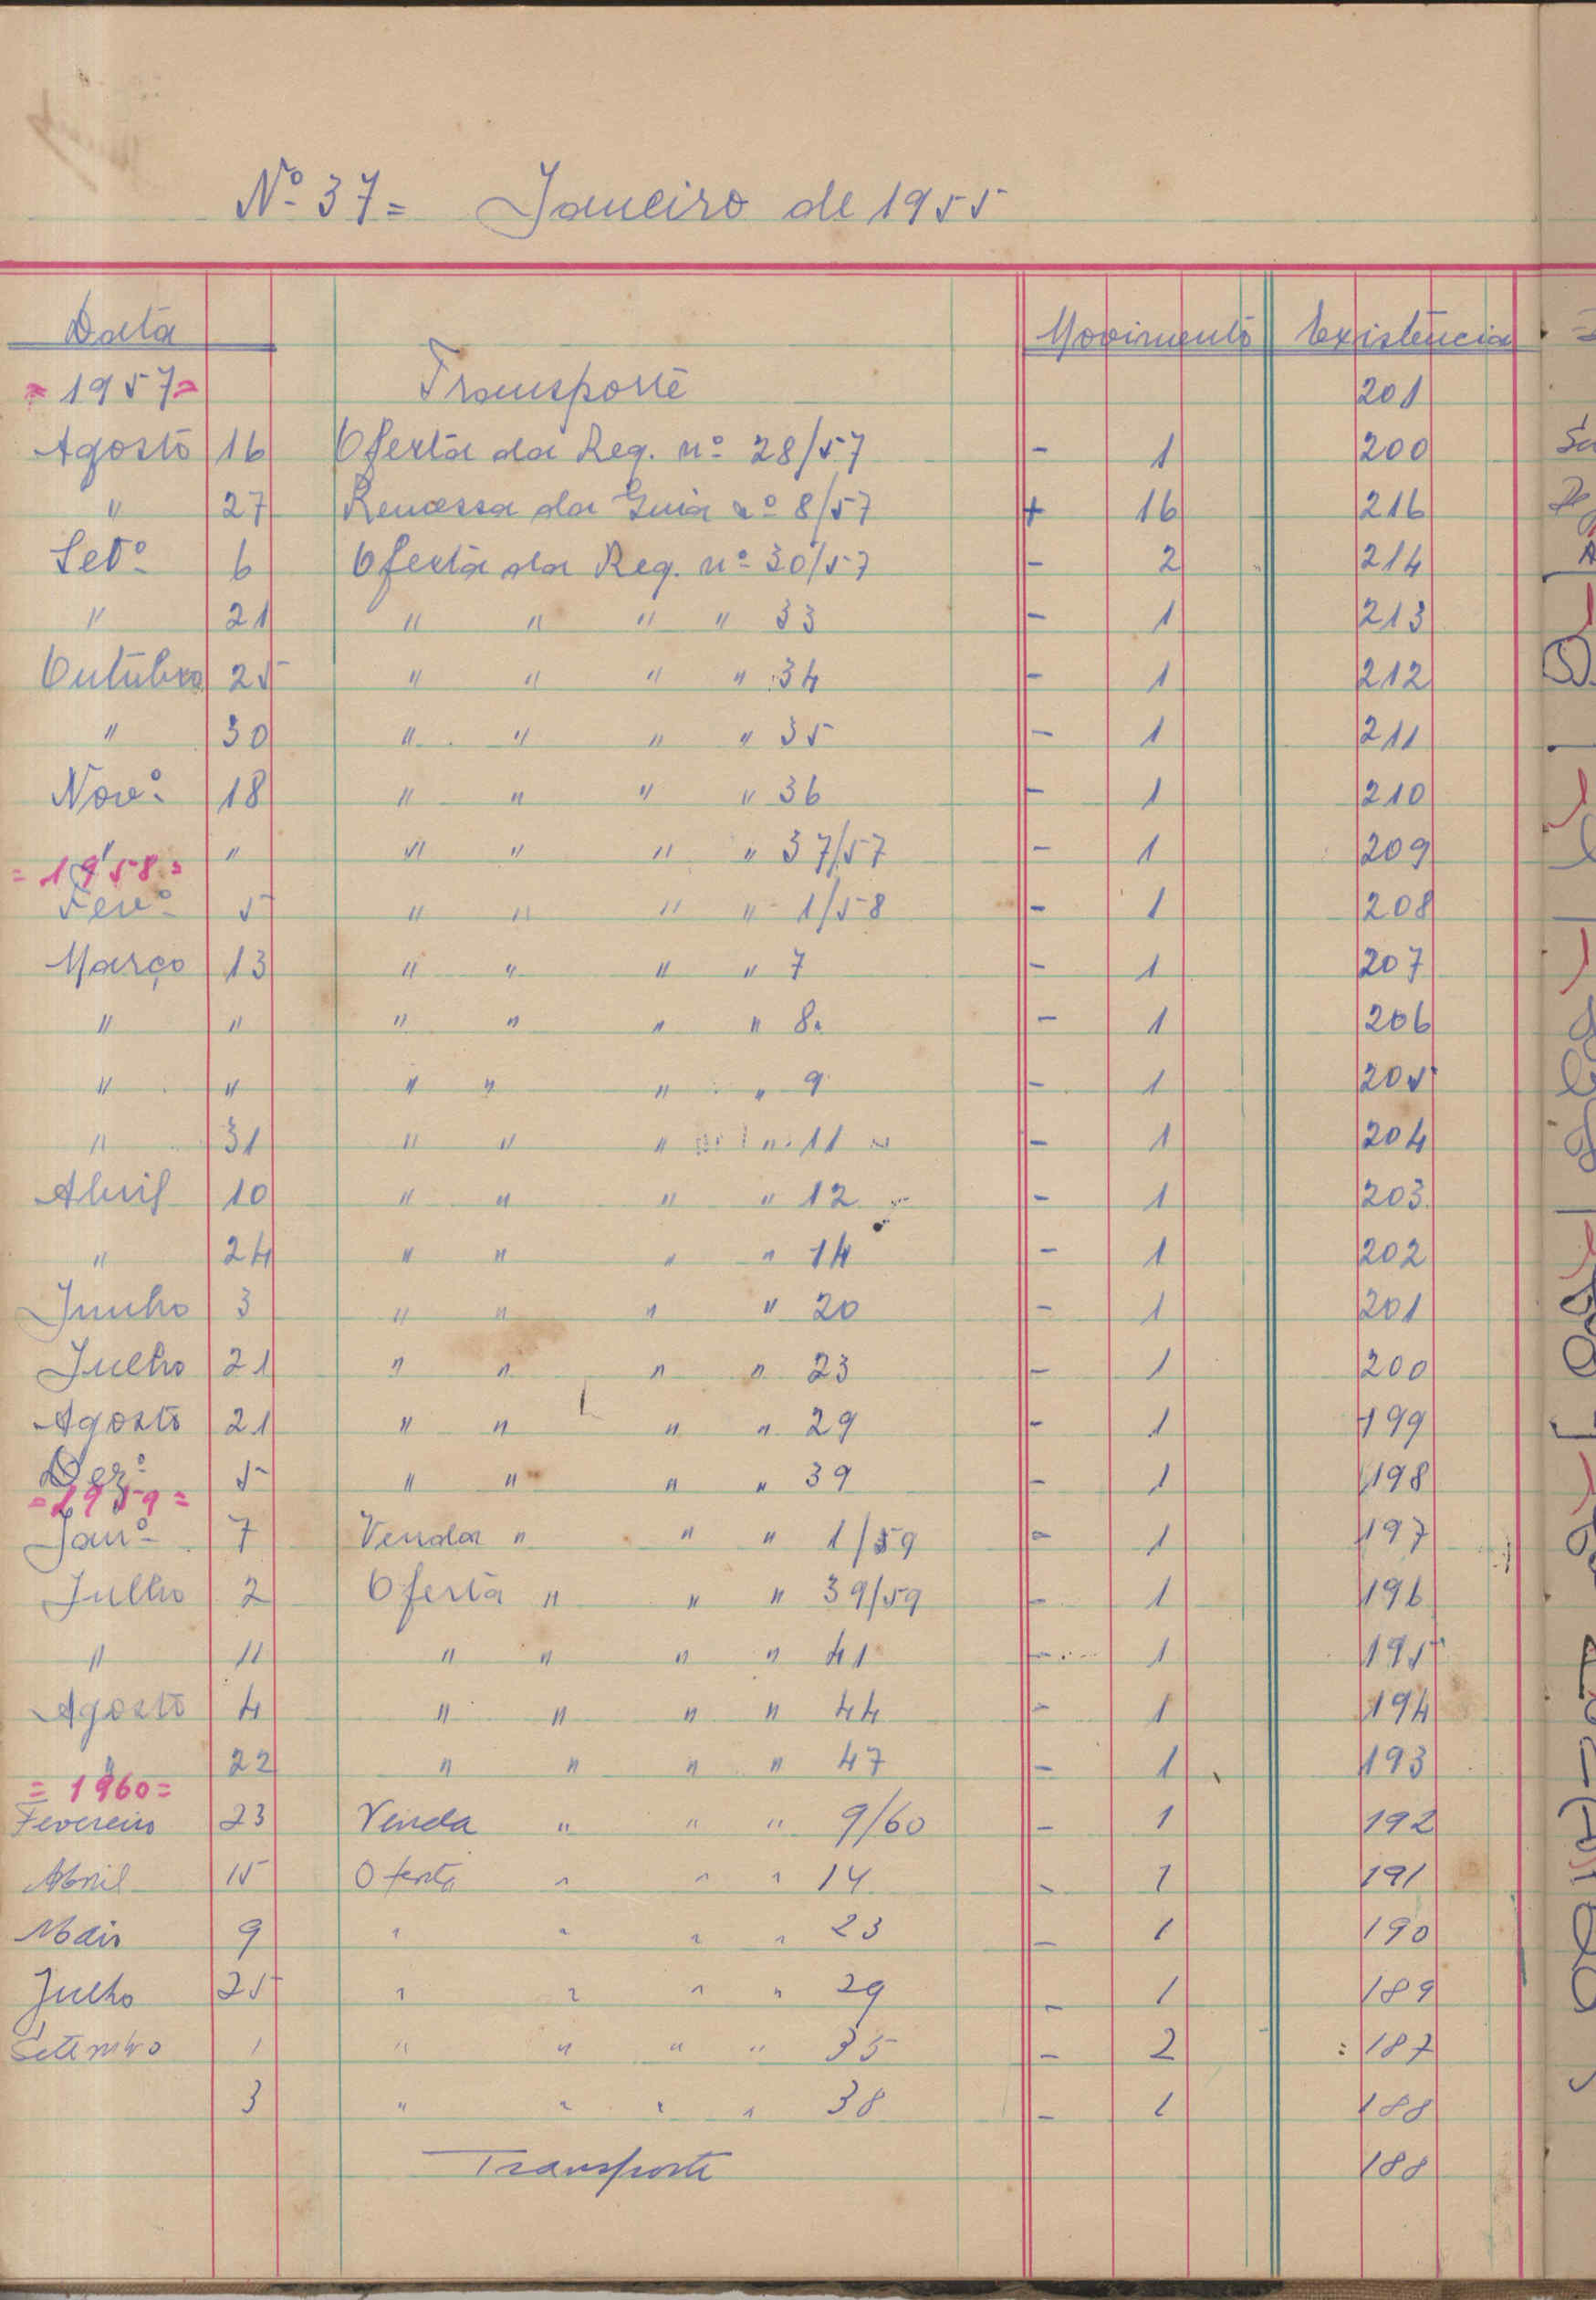 Nº 37= Janeiro de 1955
Data Movimento Existência
=1957= Transporte 201
Agosto 16 Oferta da Req. nº 28/57 - 1 200
" 27 Remessa da Guia nº 8/57 + 16 216
Setº 6 Oferta da Req. nº 30/57 - 2 214
" 21 " " " " 33 - 1 213
Outubro 25 " " " " 34 - 1 212
" 30 " " " " 35 - 1 211
Novº 18 " " " " 36 - 1 210
" " " " " " 37/57 - 1 209
=1958=
Fevº 5 " " " " 1/58 - 1 208
Março 13 " " " " 7 - 1 207
" " " " " " 8 - 1 206
" " " " " " 9 - 1 205
" 31 " " " " 11 - 1 204
Abril 10 " " " " 12 - 1 203
" 24 " " " " 14 - 1 202
Junho 3 " " " " 20 - 1 201
Julho 21 " " " " 23 - 1 200
Agosto 21 " " " " 29 - 1 199
Dezº 5 " " " " 39 - 1 198
=1959=
Janº 7 Venda " " " 1/59 - 1 197
Julho 2 Oferta " " " 39/59 - 1 196
" 11 " " " " 41 - 1 195
Agosto 4 " " " " 44 - 1 194
" 22 " " " " 47 - 1 193
=1960=
Fevereiro 23 Venda " " " 9/60 - 1 192
Abril 15 Oferta " " " 14 - 1 191
Maio 9 " " " " 23 - 1 190
Julho 25 " " " " 29 - 1 189
Setembro 1 " " " " 35 - 2 187
3 " " " " 38 - 1 188
Transporte 188